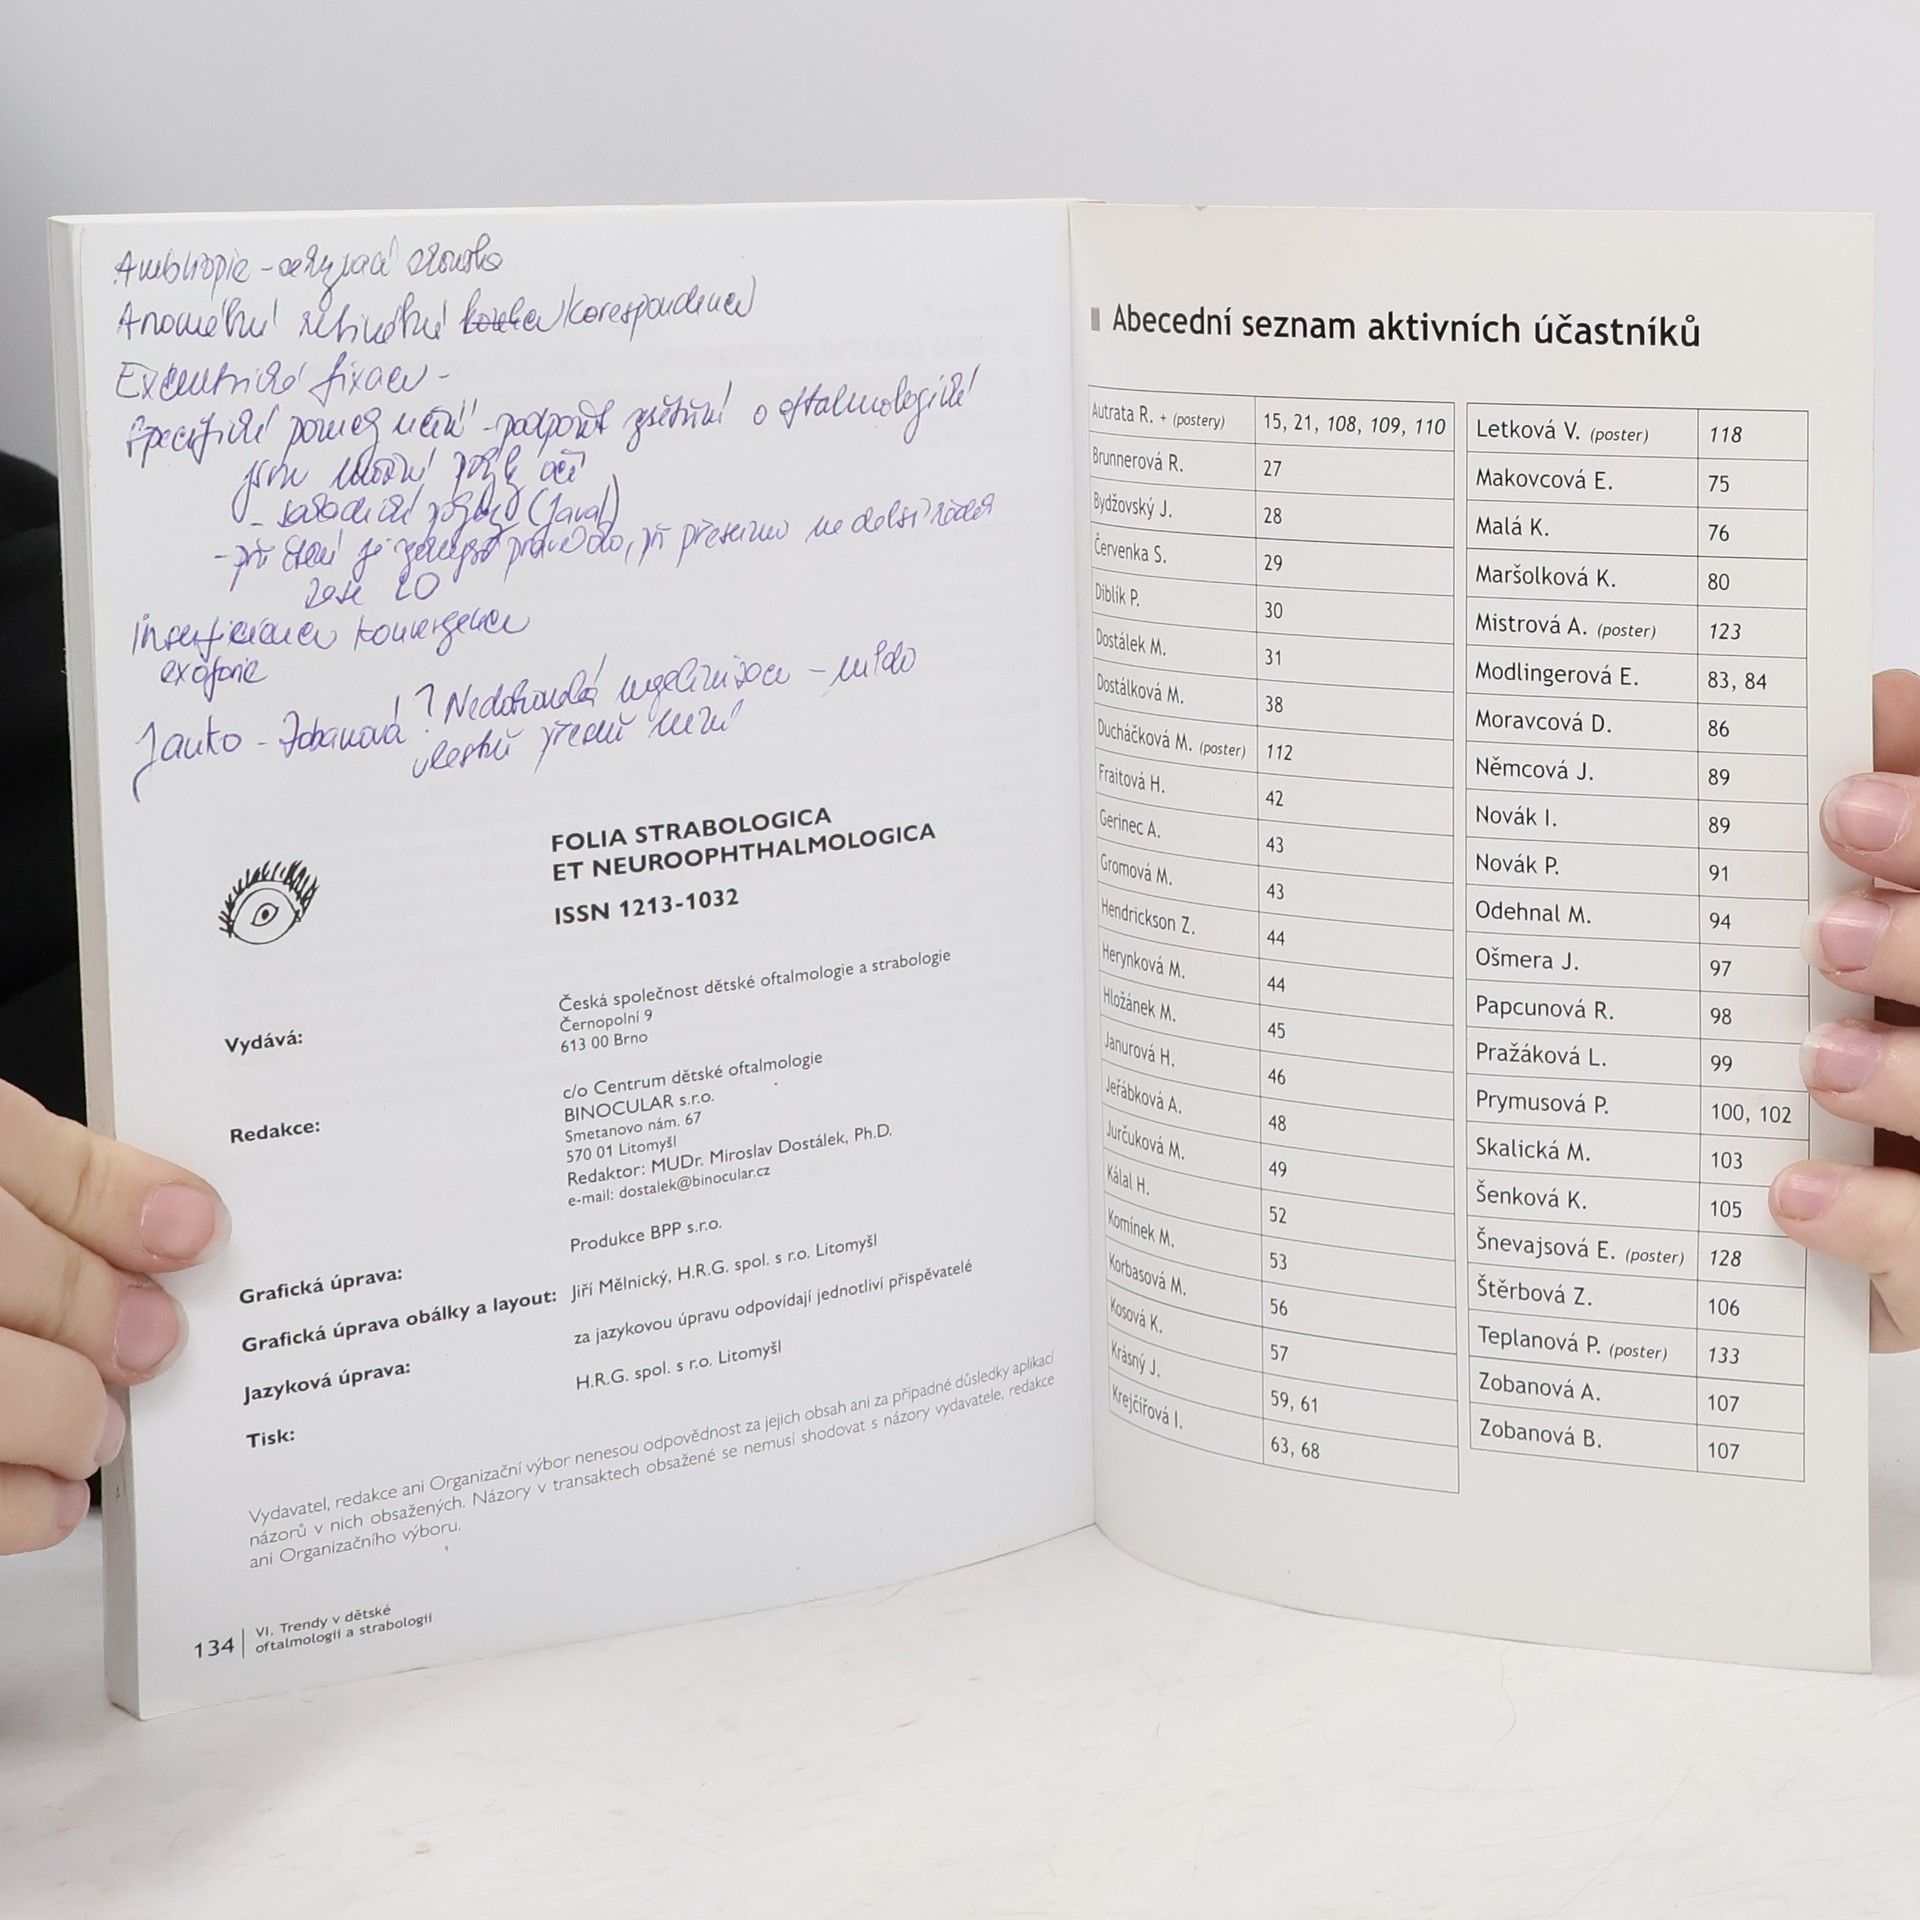 Excentrická fixace -
Specifické poruchy učení - podpořit o oftalmologické
jsou
(Javal)
- při čtení je pravidlo, při
Insuficience konvergence
exoforie
Zobanová ? Nedokonalá myelinisace -
FOLIA STRABOLOGICA
ET NEUROOPHTHALMOLOGICA
ISSN 1213-1032
Vydává:
Česká společnost dětské oftalmologie a strabologie
Černopolní 9
613 00 Brno
Redakce:
c/o Centrum dětské oftalmologie
BINOCULAR s.r.o.
Smetanovo nám. 67
570 01 Litomyšl
Redaktor: MUDr. Miroslav Dostálek, Ph.D.
e-mail: dostalek@binocular.cz
Grafická úprava: Produkce BPP s.r.o.
Grafická úprava obálky a layout: Jiří Mělnický, H.R.G. spol. s r.o. Litomyšl
Jazyková úprava: za jazykovou úpravu odpovídají jednotliví přispěvatelé
Tisk: H.R.G. spol. s r.o. Litomyšl
Vydavatel, redakce ani Organizační výbor nenesou odpovědnost za jejich obsah ani za případné důsledky aplikací
názorů v nich obsažených. Názory v transaktech obsažené se nemusí shodovat s názory vydavatele, redakce
ani Organizačního výboru.
134 VI. Trendy v dětské
oftalmologii a strabologii
Abecední seznam aktivních účastníků
Autrata R. + (postery) 15, 21, 108, 109, 110
Brunnerová R. 27
Bydžovský J. 28
Červenka S. 29
Diblík P. 30
Dostálek M. 31
Dostálková M. 38
Ducháčková M. (poster) 112
Fraitová H. 42
Gerinec A. 43
Gromová M. 43
Hendrickson Z. 44
Herynková M. 44
Hložánek M. 45
Janurová H. 46
Jeřábková A. 48
Jurčuková M. 49
Kálal H. 52
Komínek M. 53
Korbasová M. 56
Kosová K. 57
Krásný J. 59, 61
Krejčířová I. 63, 68
Letková V. (poster) 118
Makovcová E. 75
Malá K. 76
Maršolková K. 80
Mistrová A. (poster) 123
Modlingerová E. 83, 84
Moravcová D. 86
Němcová J. 89
Novák I. 89
Novák P. 91
Odehnal M. 94
Ošmera J. 97
Papcunová R. 98
Pražáková L. 99
Prymusová P. 100, 102
Skalická M. 103
Šenková K. 105
Šnevajsová E. (poster) 128
Štěrbová Z. 106
Teplanová P. (poster) 133
Zobanová A. 107
Zobanová B. 107